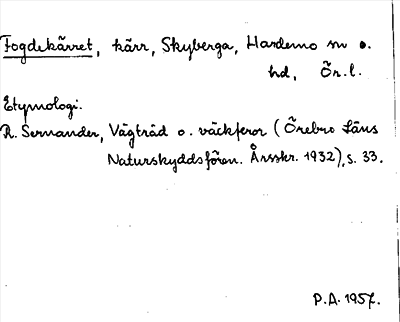 Fogdekärret, kärr, Skyberga, Hardemo sn o.
hd, Ör. l.
Etymologi.
R. Sernander, Vägträd o. väckferor (Örebro Läns
Naturskyddsfören. Årsskr. 1932), s. 33.
P.A. 1957.